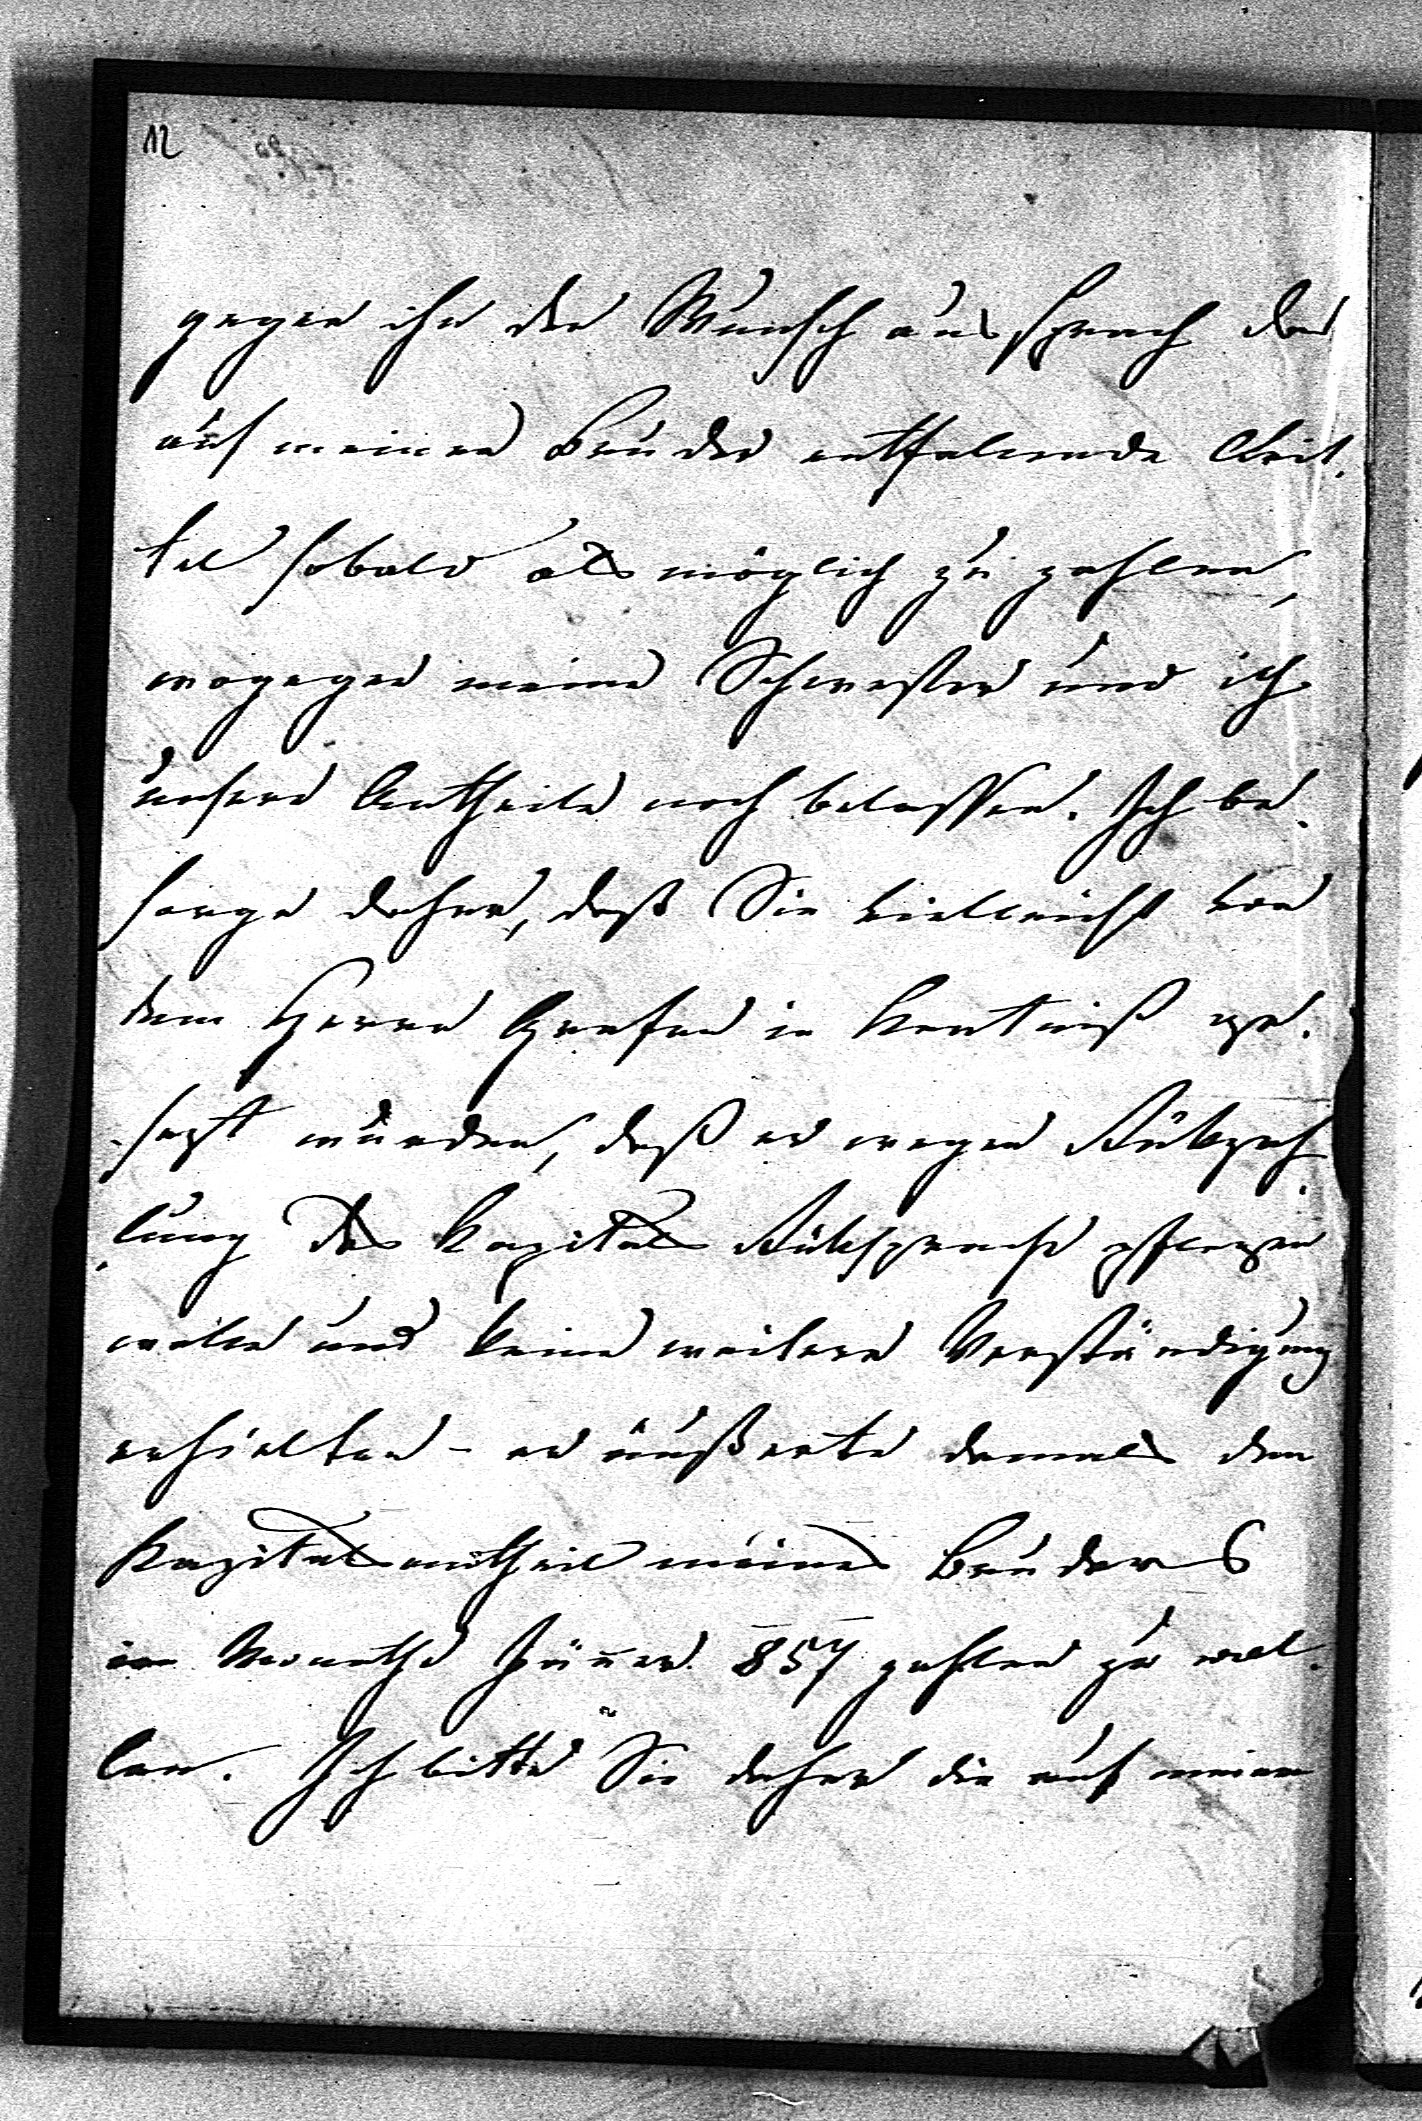 12
gegen ihn den Wunsch aussprach das
auf meinen Bruder entfallende Drit-
tel sobald als möglich zu zahlen,
wogegen meine Schwester und ich
unsere Antheile noch belassen. Ich be-
sorge daher, daß Sie vielleicht von
dem Herrn Grafen in Kentniß ge-
sezt wurden, daß er wegen Rükzah-
lung des Kapitals Rüksprache pflegen
wolle und keine weitere Verständigung
erhielten – er äußerte damals den
Kapitalsantheil meines Bruders
im Monathe Jänner 857 zahlen zu wol-
len. Ich bitte Sie daher die auf meinen